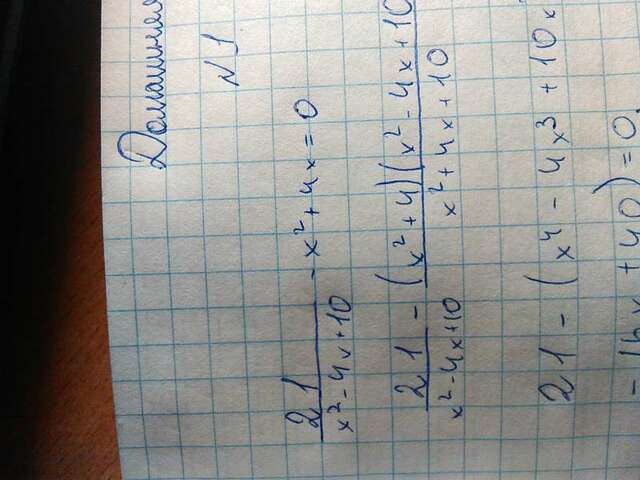 Домашняя
№1
21/(x²-4x+10) - x²+4x=0
21/(x²-4x+10) - (x²+4)(x²-4x+10/(x²+4x+10
21-(x⁴-4x³+10x
-16x+40)=0.